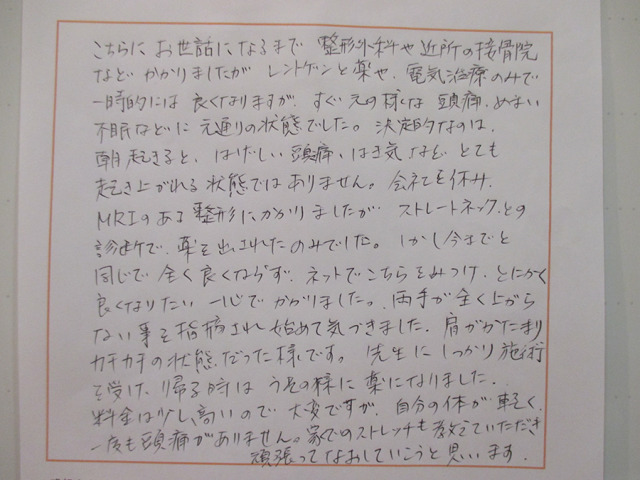 こちらに お世話になるまで 整形外科や近所の接骨院
など かかりましたが レントゲンと薬や、電気治療のみで
一時的には 良くなりますが、すぐ元の様な 頭痛、めまい
不眠などに 元通りの状態でした。決定的なのは、
朝起きると、はげしい頭痛、はき気など、とても
起き上がれる状態ではありません。会社を休み、
MRIのある整形にかかりましたが ストレートネックとの
診断で、薬を出されたのみでした。しかし今までと
同じで全く良くならず、ネットでこちらをみつけ、とにかく
良くなりたい 一心でかかりました。両手が全く上がら
ない事を指摘され始めて気づきました。肩がかたまり
カチカチの状態だった様です。先生にしっかり施術
を受け、帰る時は うその様に楽になりました。
料金は少し高いので 大変ですが、自分の体が軽く、
一度も頭痛がありません。家でのストレッチも教えていただき
頑張ってなおしていこうと思います。